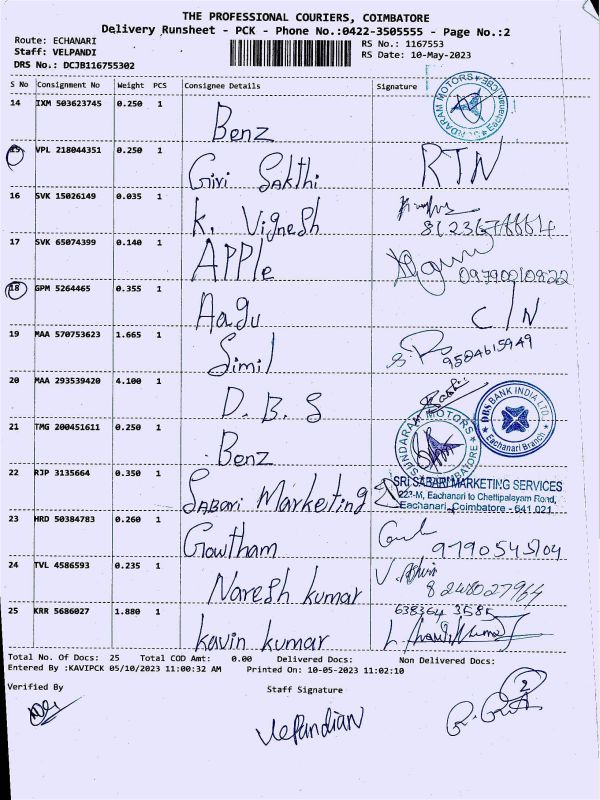 THE PROFESSIONAL COURIERS, COIMBATORE
Delivery Runsheet - PCK - Phone No.:0422-3505555 - Page No.:2
Route: ECHANARI
Staff: VELPANDI
DRS No.: DCJB116755302
RS No.: 1167553
RS Date: 10-May-2023
S No Consignment No Weight PCS Consignee Details Signature
14 IXM 503623745 0.250 1
Benz
SUNDARAM MOTORS
Eachanari
15 VPL 218044351 0.250 1
Giri Sakthi RTN
16 SVK 15026149 0.035 1
K. Vignesh
17 SVK 65074399 0.140 1
APPle 09790010922
18 GPM 5264465 0.355 1
Aagu C/N
19 MAA 570753623 1.665 1
Simil 9504615949
20 MAA 293539420 4.100 1
D.B.S
DBS BANK INDIA LTD.
Eachanari Branch
21 TMG 200451611 0.250 1
Benz
SUNDARAM MOTORS
COIMBATORE
22 RJP 3135664 0.350 1
SABari Marketing
SRI SABARI MARKETING SERVICES
223-M, Eachanari to Chettipalayam Road,
Eachanari, Coimbatore - 641 021
23 HRD 50384783 0.260 1
Gowtham 9790545704
24 TVL 4586593 0.235 1
Naresh kumar 8248027964
25 KRR 5686027 1.880 1
638364 3585
kavin kumar
Total No. Of Docs: 25 Total COD Amt: 0.00 Delivered Docs: Non Delivered Docs:
Entered By :KAVIPCK 05/10/2023 11:00:32 AM Printed On: 10-05-2023 11:02:10
Verified By Staff Signature
Velpandian
2